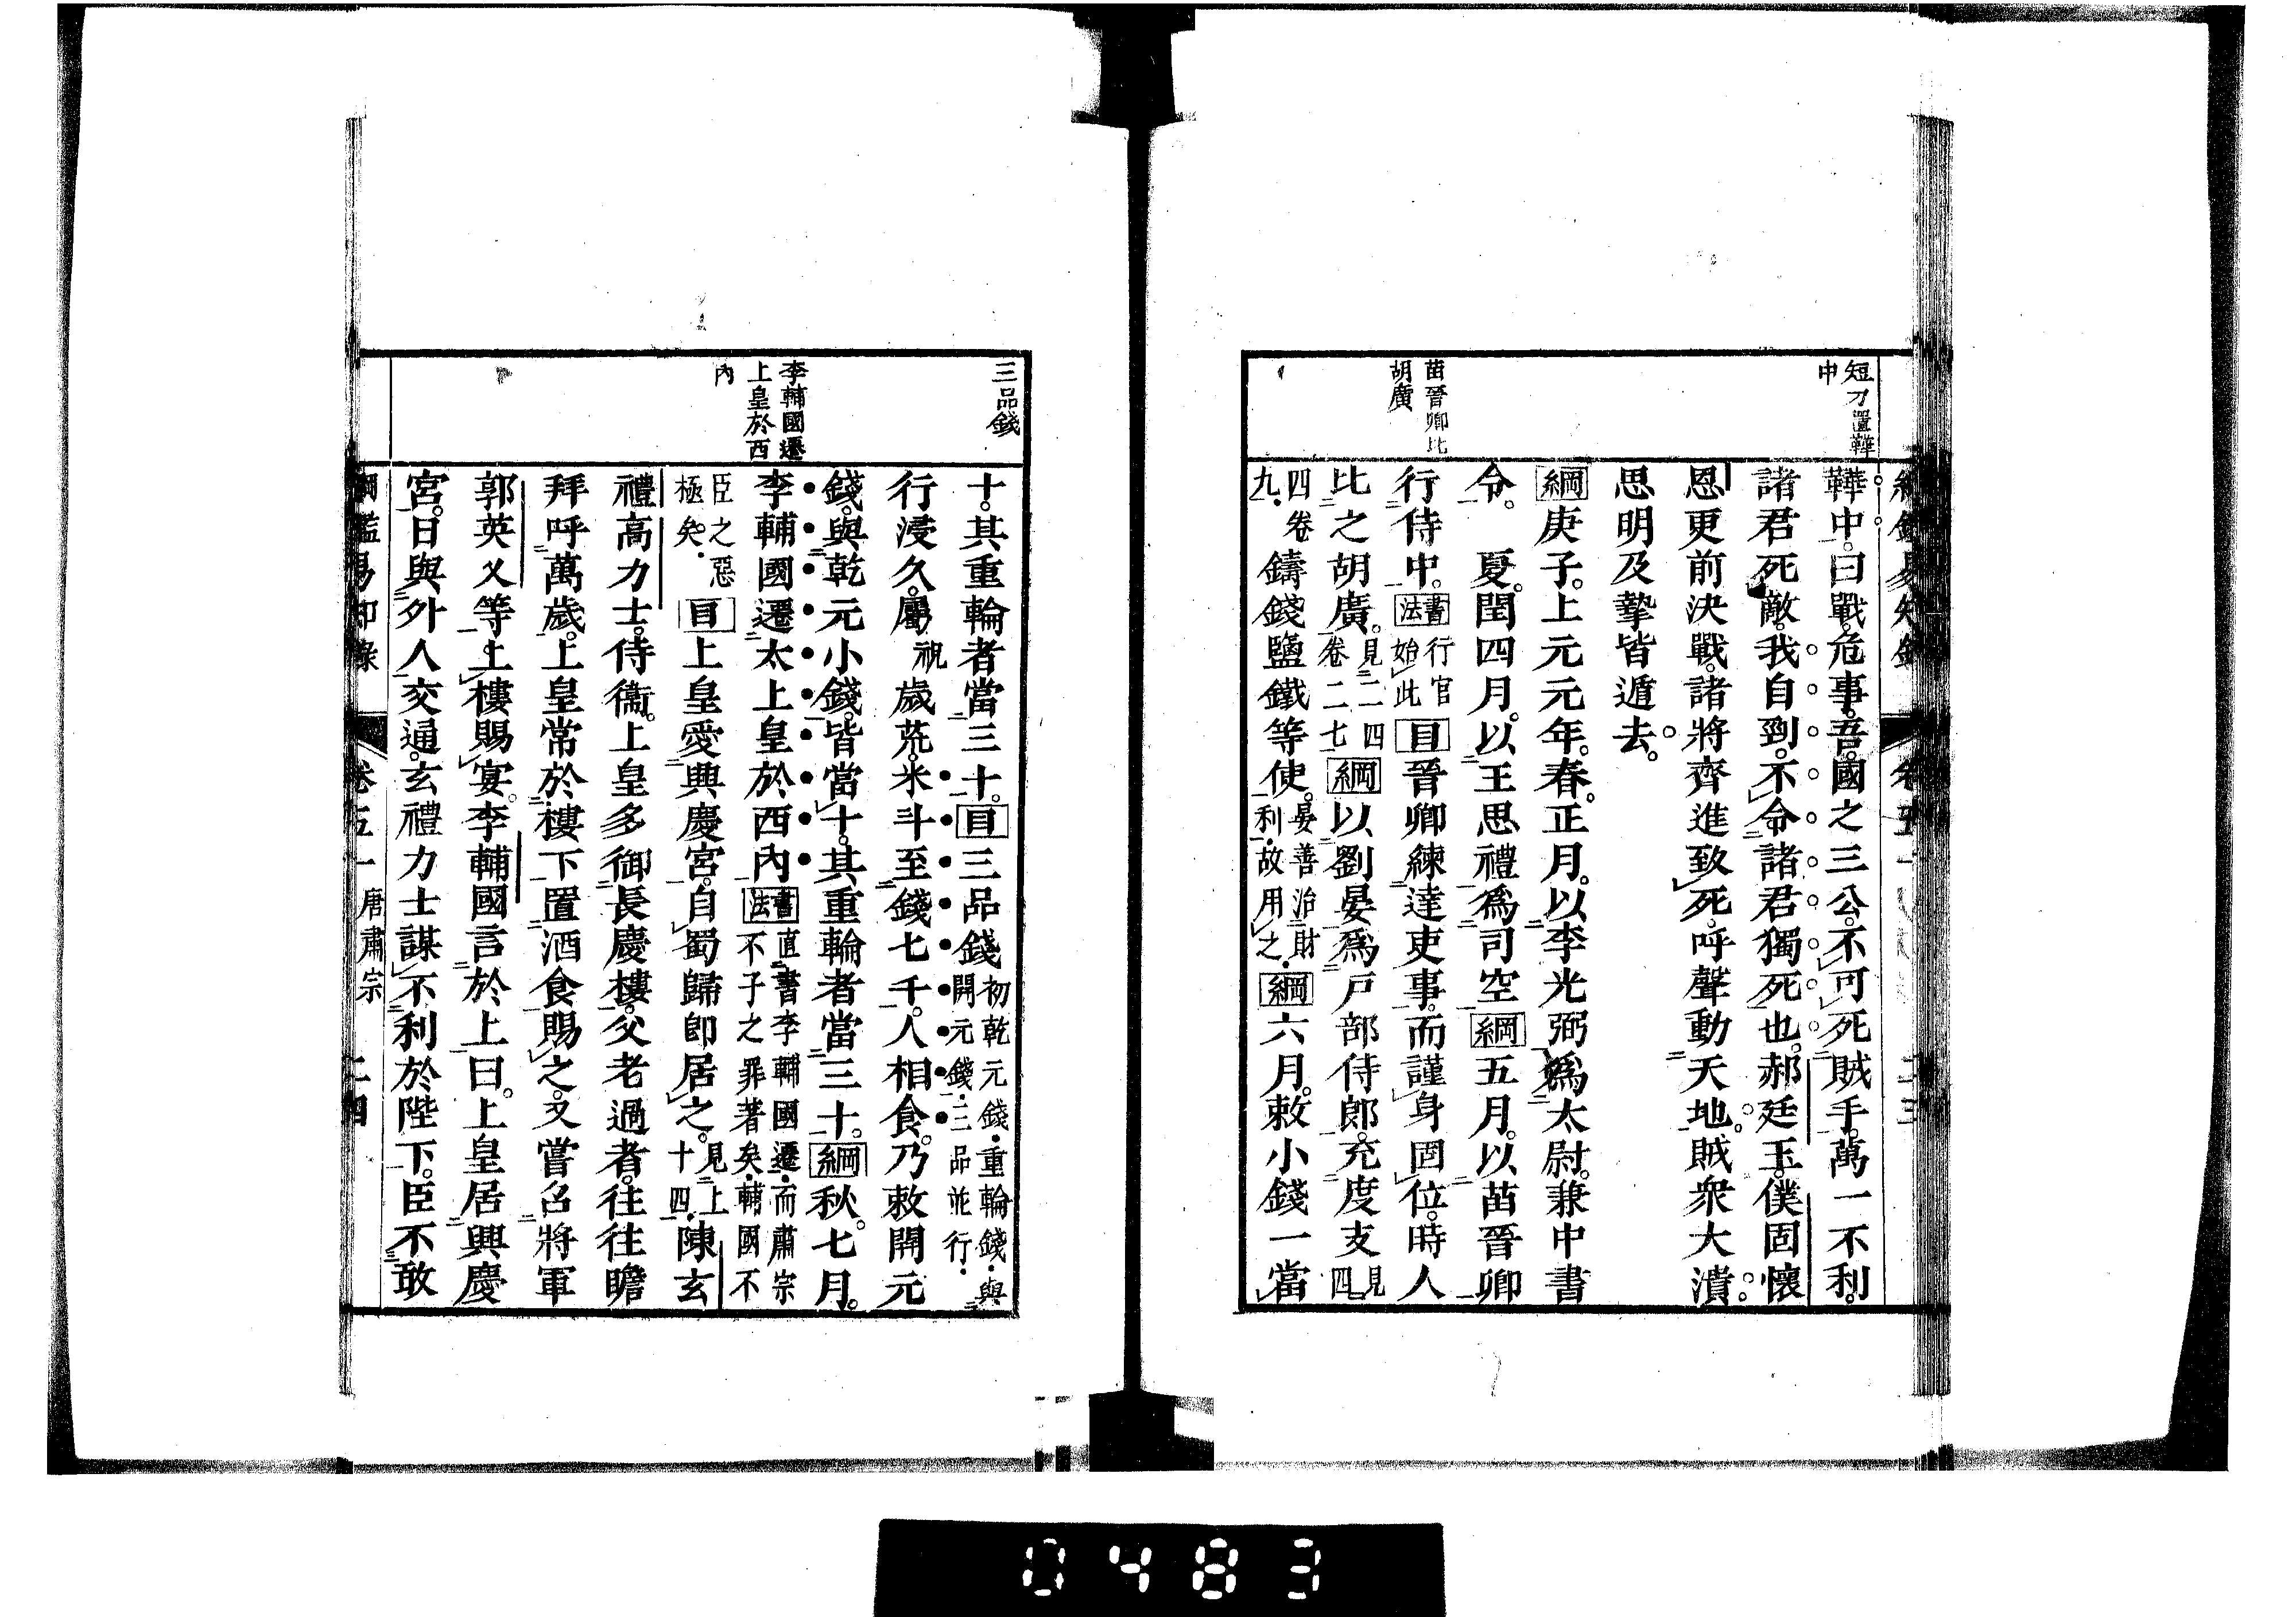 短刀置鞾
中
鞾中。曰戰。危事。吾。國之三公。不可死賊手。萬一不利。
諸君死敵。我自剄。不令諸君獨死也。郝廷玉。僕固懷
恩更前決戰。諸將齊進致死。呼聲動天地。賊衆大潰。
思明及摯皆遁去。
綱庚子。上元元年。春。正月。以李光弼爲太尉。兼中書
令。　夏。閏四月。以王思禮爲司空綱五月。以苗晉卿
苗晉卿比
胡廣
行侍中。書法行官始此目晉卿練達吏事。而謹身固位。時人
比之胡廣。見二四卷二七綱以劉晏爲戶部侍郎。充度支見四
四卷九.鑄錢鹽鐵等使。晏善治財利.故用之.綱六月。敕小錢一當
三品錢
十。其重輪者當三十。目三品錢初乾元錢.重輪錢.與開元錢.三品並行.
行浸久。屬祝歲荒。米斗至錢七千。人相食。乃敕開元
錢。與乾元小錢。皆當十。其重輪者當三十。綱秋。七月。
李輔國遷
上皇於西
內
李輔國遷太上皇於西內書法直書李輔國遷.而肅宗不子之罪著矣.輔國不
臣之惡極矣.目上皇愛興慶宮。自蜀歸即居之。見上十四.陳玄
禮高力士。侍衞。上皇多御長慶樓。父老過者。往往瞻
拜呼萬歲。上皇常於樓下置酒食賜之。又嘗召將軍
郭英乂等。上樓賜宴。李輔國言於上曰。上皇居興慶
宮。日與外人交通。玄禮力士謀不利於陛下。臣不敢
綱鑑易知錄　卷五一　唐肅宗　二四
0483